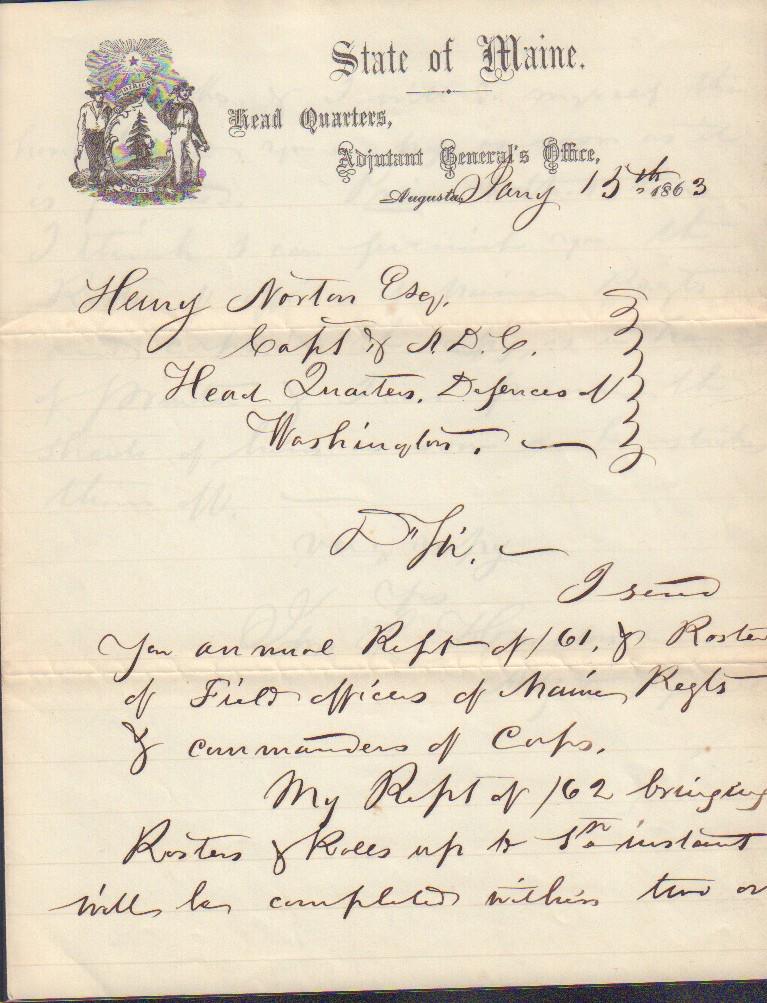 State of Maine.
Head Quarters,
Adjutant General's Office,
Augusta, Jany 15th 1863
Henry Norton Esq.
Capt & A.D.C.
Head Quarters, Defences of
Washington.
Dr Sir,
I send
you annual Rept of /61, & Roster
of Field officers of Maine Regts
& commanders of Corps.
My Rept of /62 bringing
Rosters & Rolls up to 1st instant
will be completed within two or